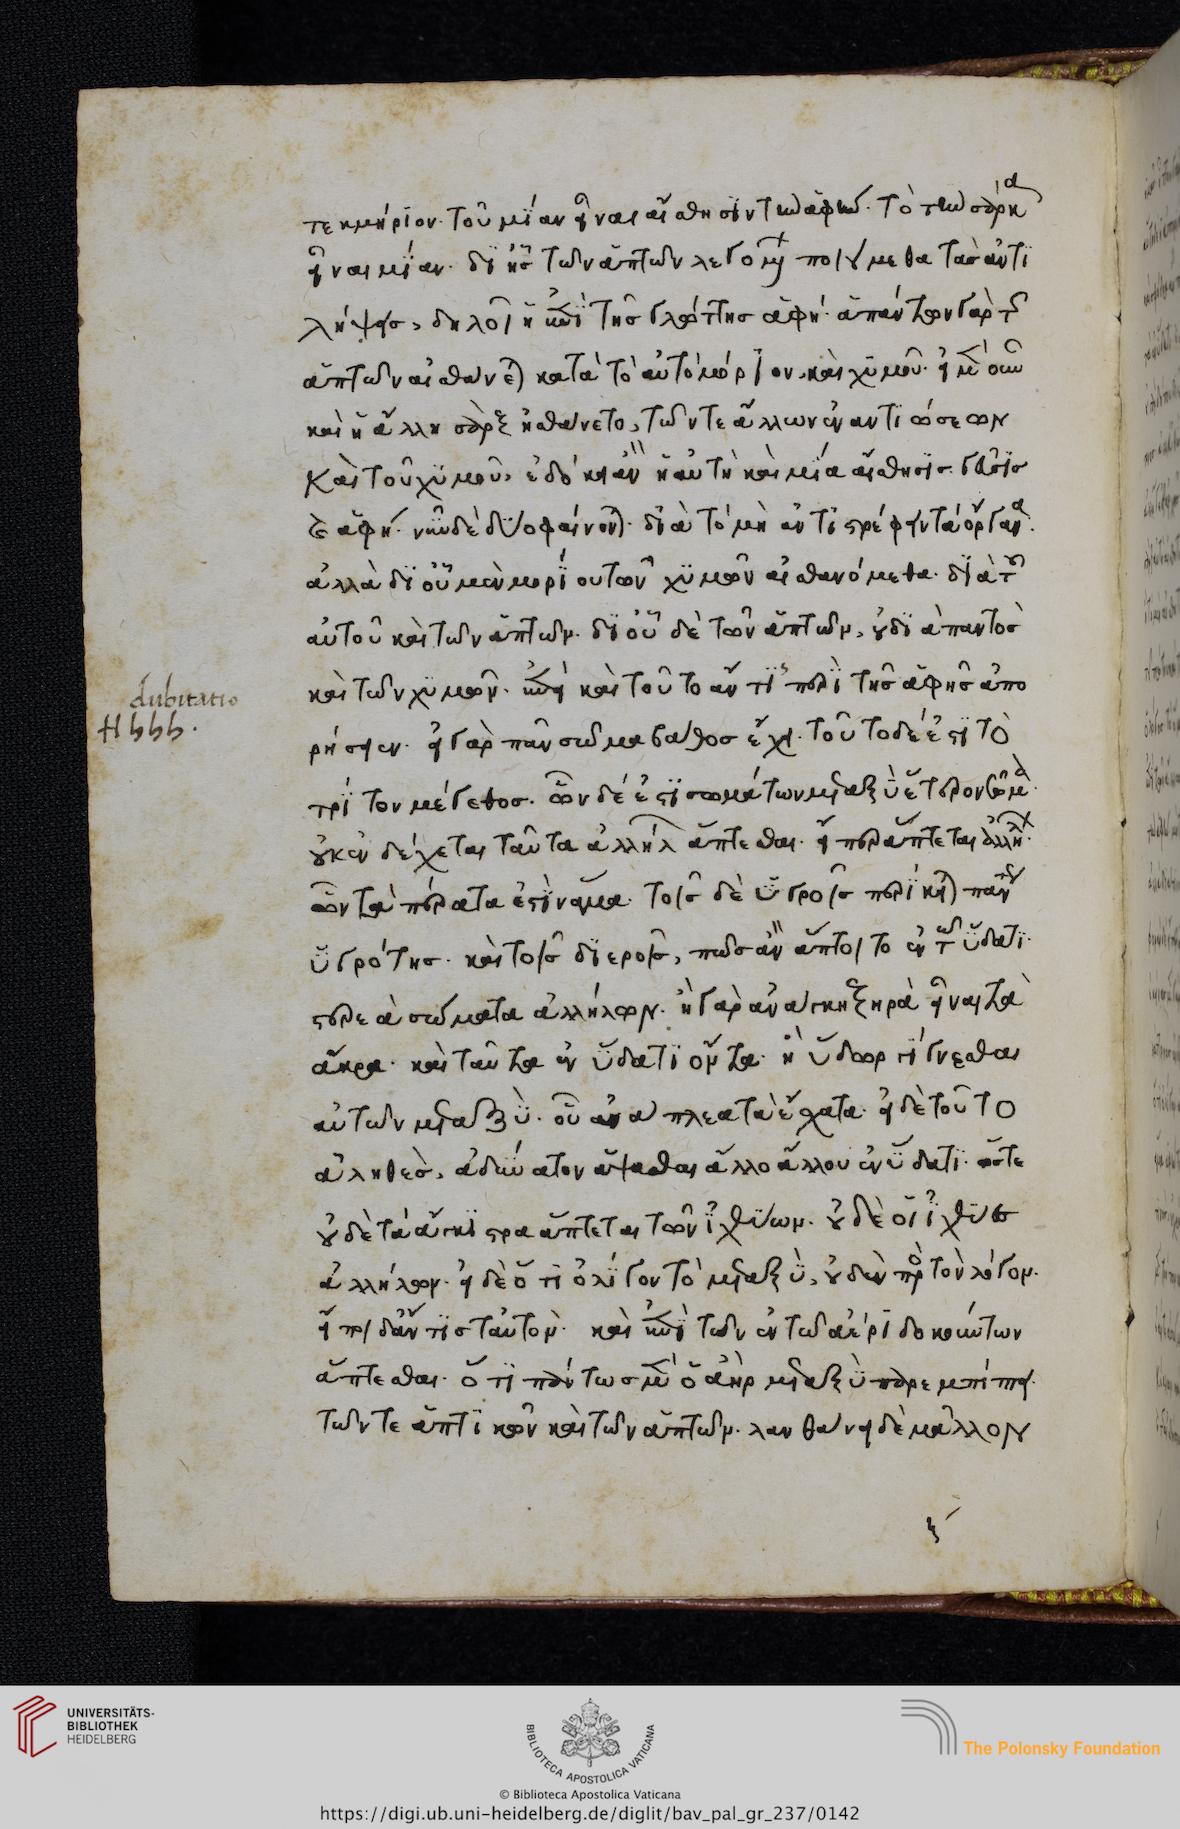 τεκμήριον τοῦ μίαν εἶναι αἴσθησιν τὴν ἁφήν. τὸ τὴν σάρκα
εἶναι μίαν. δι' ἧς τῶν ἁπτῶν λεγομεν ποιούμεθα τὰς ἀντι
λήψεις, δηλοῖ ἡ ἐπὶ τῆς γλώττης ἁφή. ἁπάντων γὰρ τῶν
ἁπτῶν αἰσθάνεται κατὰ τὸ αὐτὸ μόριον, καὶ χυμοῦ. εἰ μὲν οὖν
καὶ ἡ ἄλλη σὰρξ ἠσθάνετο, τῶν τε ἄλλων ἐναντιώσεων
καὶ τοῦ χυμοῦ, ἐδόκει ἂν ἡ αὐτὴ καὶ μία αἴσθησις γεῦσις
καὶ ἁφή. νῦν δὲ δύο φαίνονται. διὰ τὸ μὴ ἀντιστρέφειν τὰ ὄργανα.
ἀλλὰ δι' οὗ μὲν μορίου τῶν χυμῶν αἰσθανόμεθα. διὰ τοῦ
αὐτοῦ καὶ τῶν ἁπτῶν. δι' οὗ δὲ τῶν ἁπτῶν, οὐ διὰ παντὸς
καὶ τῶν χυμῶν. καὶ τοῦτο ἄν τις περὶ τῆς ἁφῆς ἀπο
ρήσειεν. εἰ γὰρ πᾶν σῶμα βάθος ἔχει. τοῦτο δέ ἐστι τὸ
τρίτον μέγεθος. ὧν δέ ἐστι σωμάτων μεταξὺ ἕτερον σῶμα.
οὐκ ἐνδέχεται ταῦτα ἀλλήλων ἅπτεσθαι.
ὧν τὰ πέρατα ἐστὶν ἅμα. τοῖς δὲ ὑγροῖς περίκειται πᾶσιν
ὑγρότης. καὶ τοῖς διεροῖς, πῶς ἂν ἅπτοιτο ἐν τῷ ὕδατι
στερεὰ σώματα ἀλλήλων. ἢ γὰρ ἀνάγκη ξηρὰ εἶναι τὰ
ἄκρα. καὶ ταῦτα ἐν ὕδατι ὄντα. ἢ ὕδωρ τι γίνεσθαι
αὐτῶν μεταξύ. οὗ ἀνάπλεα τὰ ἔσχατα. εἰ δὲ τοῦτο
ἀληθές, ἀδύνατον ἅψασθαι ἄλλο ἄλλου ἐν ὕδατι. ὥστε
οὐδὲ τὰ ἄγκιστρα ἅπτεται τῶν ἰχθύων. οὐδὲ οἱ ἰχθῦς
ἀλλήλων. εἰ δὲ ὅτι ὀλίγον τὸ μεταξύ, οὐδὲν πρὸς τὸν λόγον.
εἴποι δ' ἄν τις ταὐτὸν. καὶ ἐπὶ τῶν ἐν τῷ ἀέρι δοκούντων
ἅπτεσθαι. ὅτι πάντως μὲν ὁ ἀὴρ μεταξὺ παρεμπίπτει.
τῶν τε ἁπτικῶν καὶ τῶν ἁπτῶν. λανθάνει δὲ μᾶλλον
dubitatio
Hhhh.
UNIVERSITÄTS-
BIBLIOTHEK
HEIDELBERG
BIBLIOTECA APOSTOLICA VATICANA
The Polonsky Foundation
© Biblioteca Apostolica Vaticana
https://digi.ub.uni-heidelberg.de/diglit/bav_pal_gr_237/0142